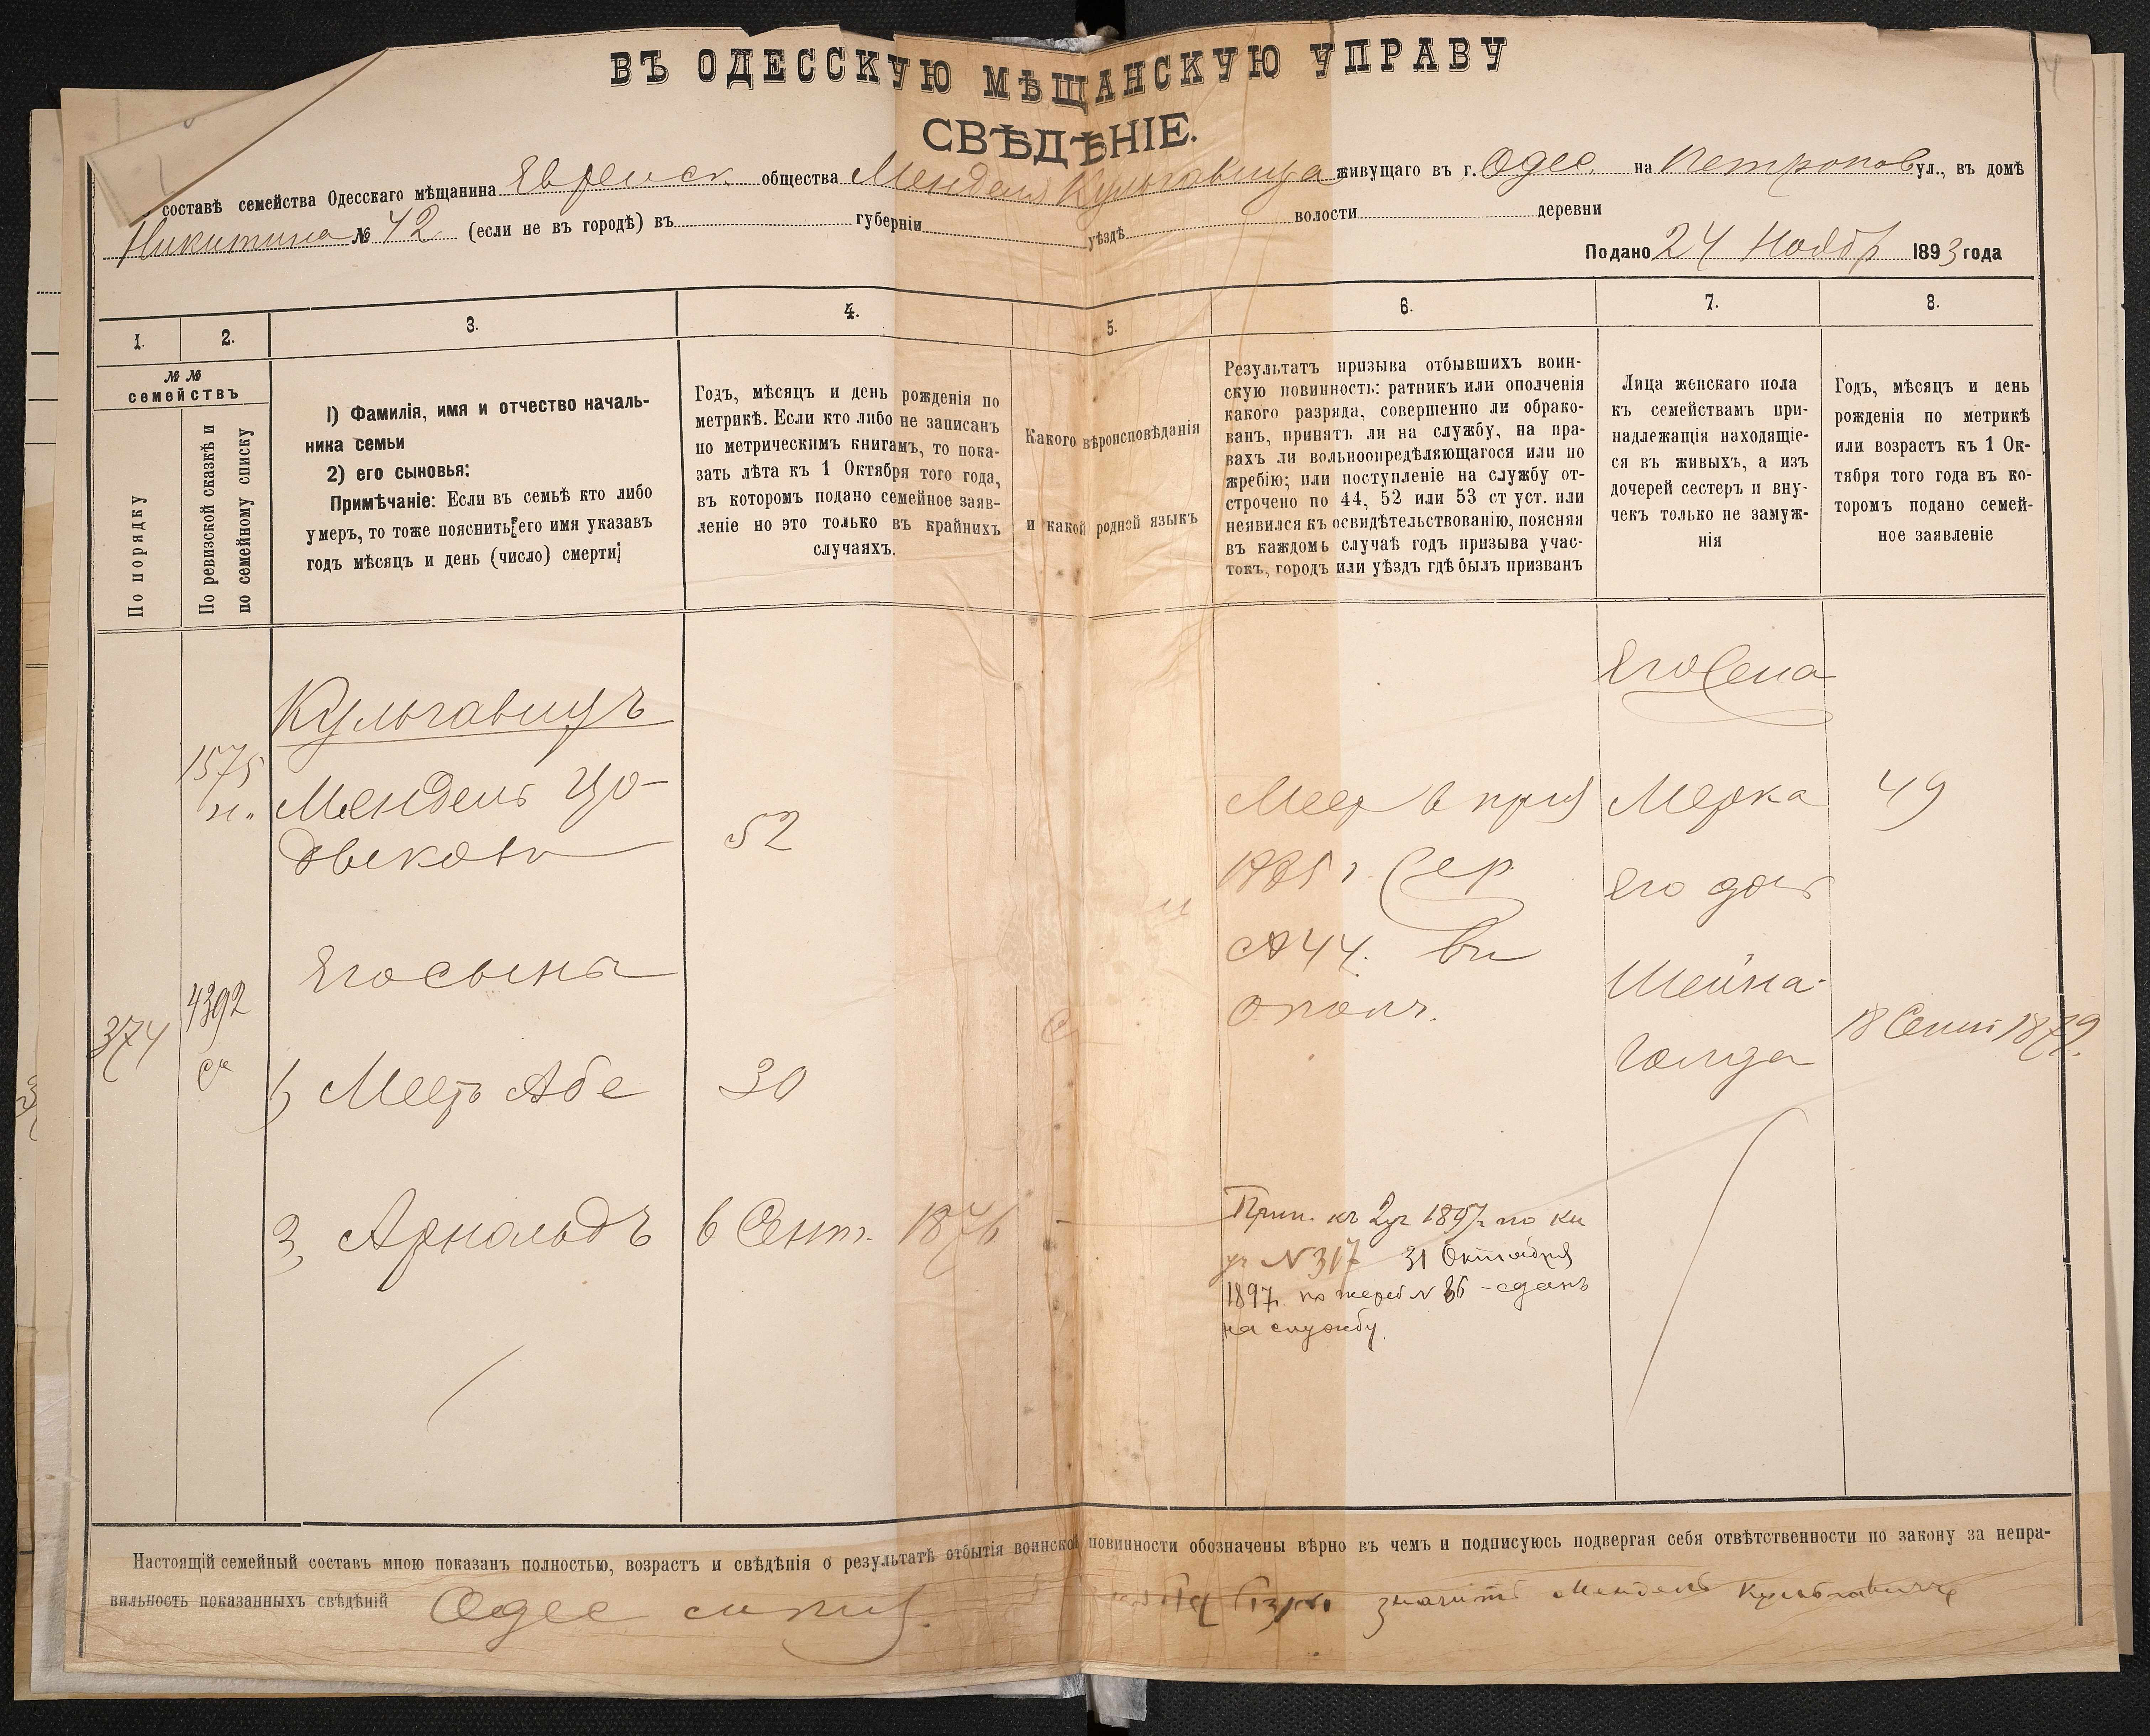 ВЪ ОДЕССКУЮ МѢЩАНСКУЮ УПРАВУ
СВѢДѢНІЕ.
составѣ семейства Одесскаго мѣщанина Еврейск. общества Мендель Кульгавица живущаго въ г. Одес. на Петропов ул., въ домѣ
Никитина № 42 (если не въ городѣ) въ губерніи уѣздѣ волости деревни
Подано 24 Ноябр 1893 года
1. 2. 3. 4. 5. 6. 7. 8.
№№
семействъ
По порядку
По ревизской сказкѣ и
по семейному списку
1) Фамилія, имя и отчество началь-
ника семьи
2) его сыновья:
Примѣчаніе: Если въ семьѣ кто либо
умеръ, то тоже пояснить его имя указавъ
годъ мѣсяцъ и день (число) смерти
Годъ, мѣсяцъ и день рожденія по
метрикѣ. Если кто либо не записанъ
по метрическимъ книгамъ, то пока-
зать лѣта къ 1 Октября того года,
въ которомъ подано семейное заяв-
леніе но это только въ крайнихъ
случаяхъ.
Какого вѣроисповѣданія
и какой родной языкъ
Результатъ призыва отбывшихъ воин-
скую повинность: ратникъ или ополченія
какого разряда, совершенно ли обрако-
ванъ, принятъ ли на службу, на пра-
вахъ ли вольноопредѣляющагося или по
жребію; или поступленіе на службу от-
строчено по 44, 52 или 53 ст уст. или
неявился къ освидѣтельствованію, поясняя
въ каждомъ случаѣ годъ призыва учас-
токъ, городъ или уѣздъ гдѣ былъ призванъ
Лица женскаго пола
къ семействамъ при-
надлежащія находящіе-
ся въ живыхъ, а изъ
дочерей сестеръ и вну-
чекъ только не замуж-
нія
Годъ, мѣсяцъ и день
рожденія по метрикѣ
или возрастъ къ 1 Ок-
тября того года въ ко-
торомъ подано семей-
ное заявленіе
374
1575
н.
4392
ск
Кульгавицъ
Мендель Цо-
двековъ
52
Его сынъ
1) Меер Абе
30
3, Арнольдъ
6 Сент. 1876
Меер в приз
1885 г.
44. вн
ополч.
Прин. къ 2 уч 1897 г по
уч N 317 31 Октября
1897 г. по жереб N 86 - сданъ
на службу.
Его жена
Мерка
49
Его доч
Шейна-
Голда
18 Сент 1879.
Настоящій семейный составъ мною показанъ полностью, возрастъ и свѣдѣнія о результатѣ отбытія воинской повинности обозначены вѣрно въ чемъ и подписуюсь подвергая себя отвѣтственности по закону за непра-
вильность показанныхъ свѣдѣній Одес значитъ Мендель Кульгавицъ